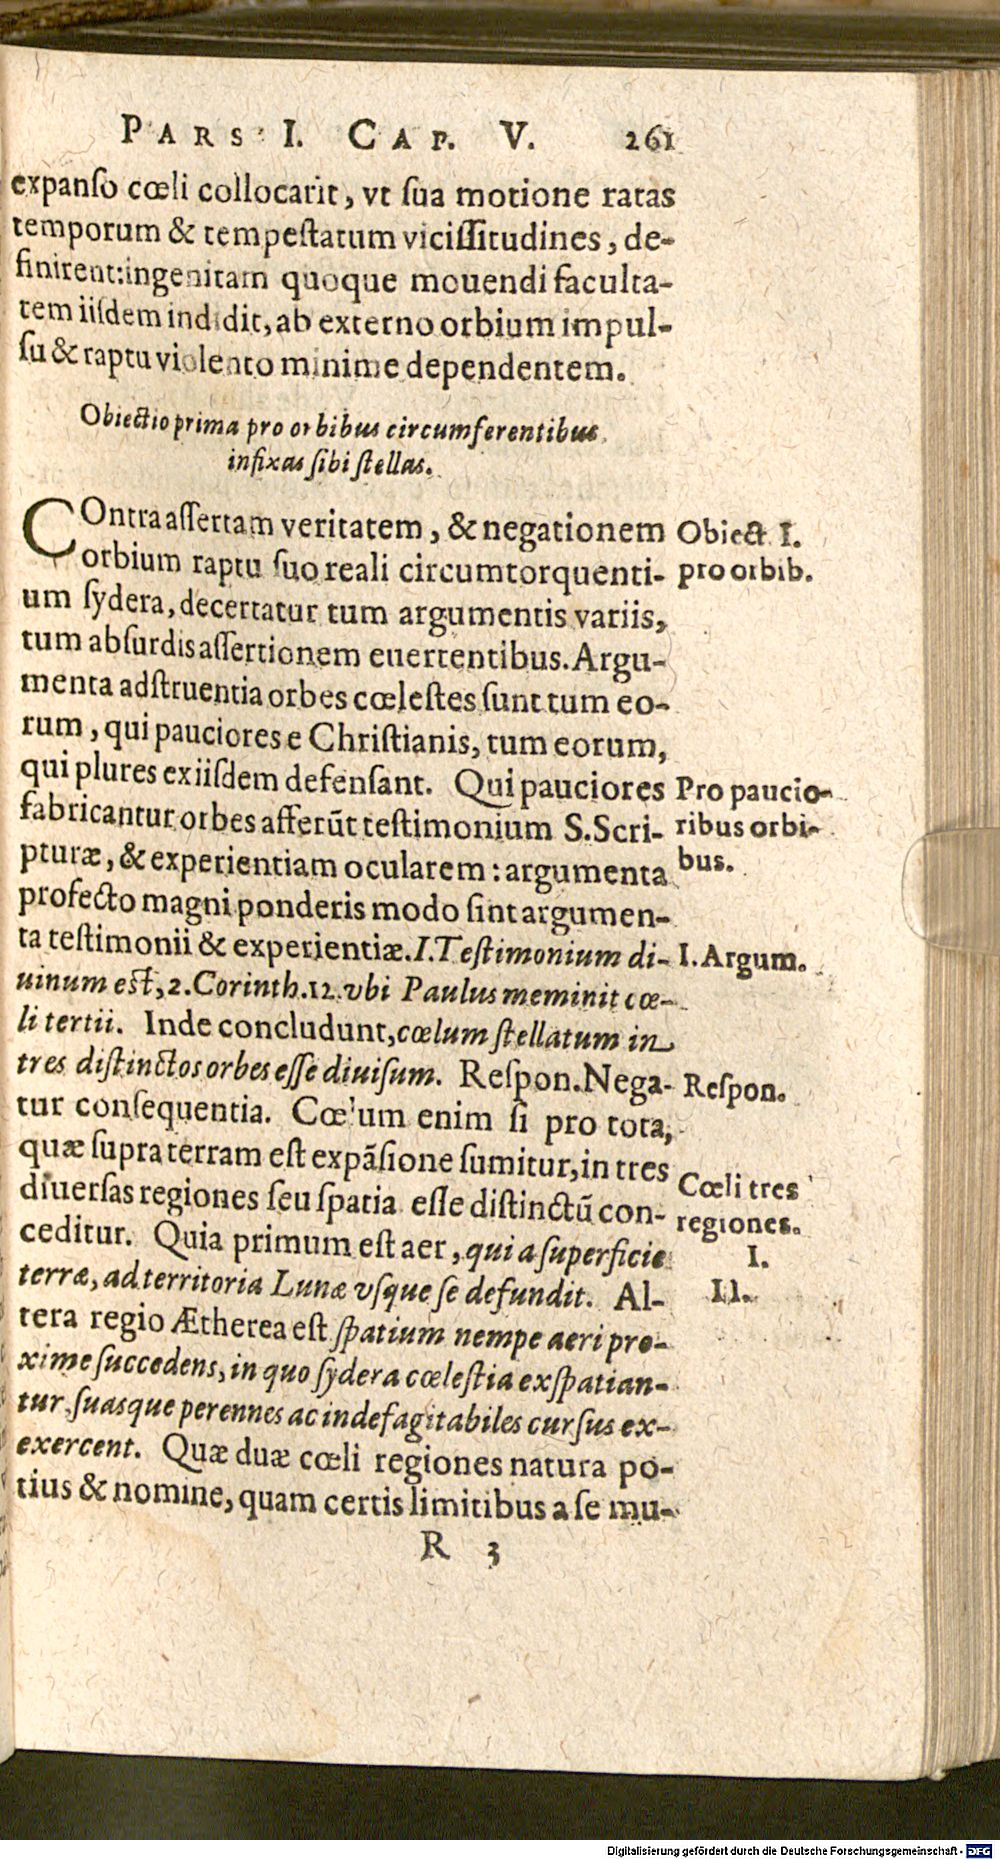 PARS I. CAP. V. 261
expanſo cœli collocarit, vt ſua motione ratas
temporum & tempeſtatum viciſſitudines, de-
finirent: ingenitam quoque mouendi faculta-
tem iiſdem indidit, ab externo orbium impul-
ſu & raptu violento minime dependentem.
Obiectio prima pro orbibus circumferentibus
infixas ſibi ſtellas.
COntra aſſertam veritatem, & negationem
Obiect. I.
orbium raptu ſuo reali circumtorquenti-
pro orbib.
um ſydera, decertatur tum argumentis variis,
tum abſurdis aſſertionem euertentibus. Argu-
menta adſtruentia orbes cœleſtes ſunt tum eo-
rum, qui pauciores e Chriſtianis, tum eorum,
qui plures ex iiſdem defenſant. Qui pauciores
Pro paucio-
fabricantur orbes afferūt teſtimonium S. Scri-
ribus orbi-
pturæ, & experientiam ocularem: argumenta
bus.
profecto magni ponderis modo ſint argumen-
ta teſtimonii & experientiæ. I. Teſtimonium di-
I. Argum.
uinum eſt, 2. Corinth. 12. vbi Paulus meminit cœ-
li tertii. Inde concludunt, cœlum ſtellatum in
tres diſtinctos orbes eſſe diuiſum. Reſpon. Nega-
Reſpon.
tur conſequentia. Cœlum enim ſi pro tota,
quæ ſupra terram eſt expãſione ſumitur, in tres
Cœli tres
diuerſas regiones ſeu ſpatia eſſe diſtinctū con-
regiones.
ceditur. Quia primum eſt aer, qui a ſuperficie
I.
terræ, ad territoria Lunæ vſque ſe defundit. Al-
II.
tera regio Ætherea eſt ſpatium nempe aeri pro-
xime ſuccedens, in quo ſydera cœleſtia exſpatian-
tur, ſuasque perennes ac indefagitabiles curſus ex-
exercent. Quæ duæ cœli regiones natura po-
tius & nomine, quam certis limitibus a ſe mu-
R 3
Digitalisierung gefördert durch die Deutsche Forschungsgemeinschaft - DFG